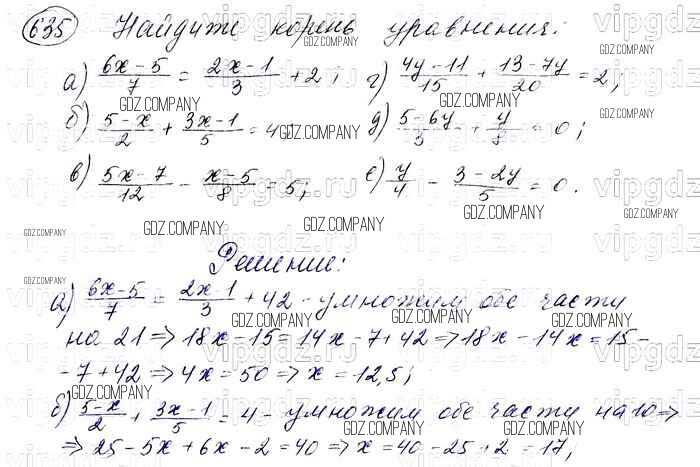 635 Найдите корень уравнения:
а) (6x-5)/7 = (2x-1)/3 + 2; г) (4y-11)/15 + (13-7y)/20 = 2;
б) (5-x)/2 + (3x-1)/5 = 4; д) (5-6y)/3 + y/8 = 0;
в) (5x-7)/12 - (x-5)/8 = 5; е) y/4 - (3-2y)/5 = 0.
Решение:
а) (6x-5)/7 = (2x-1)/3 + 42 - умножим обе части
на 21 => 18x - 15 = 14x - 7 + 42 => 18x - 14x = 15 -
- 7 + 42 => 4x = 50 => x = 12,5;
б) (5-x)/2 + (3x-1)/5 = 4 - умножим обе части на 10 =>
=> 25 - 5x + 6x - 2 = 40 => x = 40 - 25 + 2 = 17;
GDZ.COMPANY
vipgdz.ru